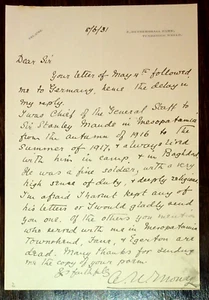 5/6/31
Dear Sir
Your letter of May 4th followed
me to Germany, hence the delay in
my reply.
I was Chief of the General Staff to
Sir Stanley Maude in Mesopotamia
from the autumn of 1916 to the
Summer of 1917, & always lived
with him in camp, & in Baghdad
He was a fine soldier, with a very
high sense of duty, & deeply religious
I'm afraid I haven't kept any of
his letters or I would gladly send
you one. Of the others you mention
who served with us in Mesopotamia
Townshend, & Egerton are
dead. Many thanks for sending
me the copy of your poem
Yrs faithfully